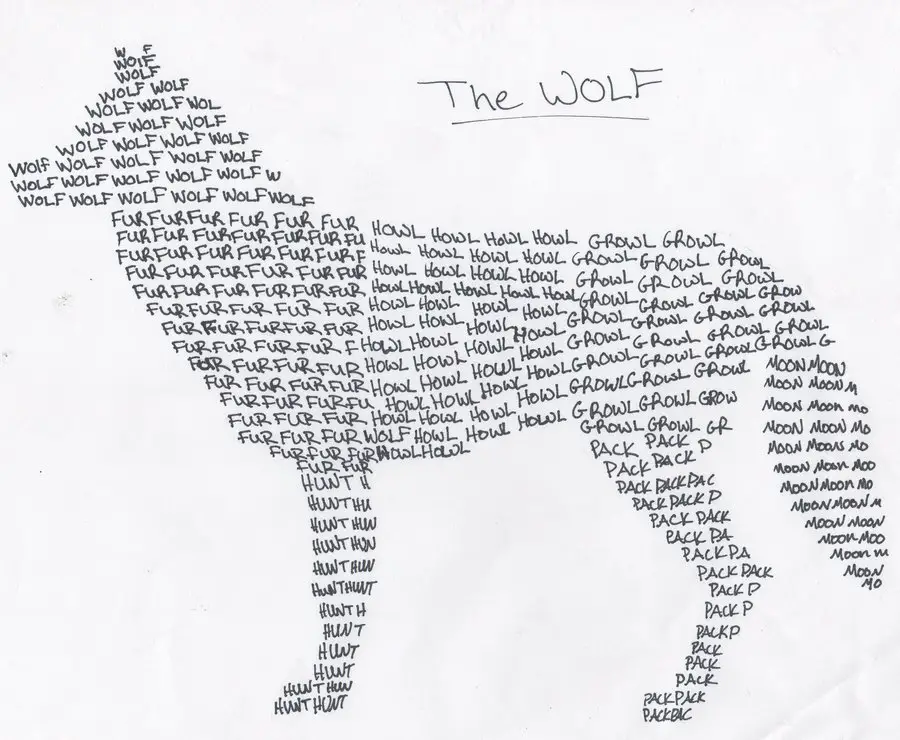 The WOLF
W F
WOLF
WOLF
WOLF WOLF
WOLF WOLF WOL
WOLF WOLF WOLF
WOLF WOLF WOLF WOLF
WOlf WOLF WOLF WOLF WOLF
WOLF WOLF WOLF WOLF WOLF W
WOLF WOLF WOLF WOLF WOLF WOLF
FUR FUR FUR FUR FUR FUR HOWL HOWL HOWL HOWL GROWL GROWL
FUR FUR FUR FUR FUR FUR FU HOWL HOWL HOWL HOWL GROWL GROWL GROWL
FUR FUR FUR FUR FUR FUR F HOWL HOWL HOWL HOWL GROWL GROWL GROWL
FUR FUR FUR FUR FUR FUR HOWL HOWL HOWL HOWL HOWL GROWL GROWL GROW
FUR FUR FUR FUR FUR FUR HOWL HOWL HOWL HOWL GROWL GROWL GROWL GROWL
FUR FUR FUR FUR FUR HOWL HOWL HOWL HOWL GROWL GROWL GROWL GROWL
FUR FUR FUR FUR FUR HOWL HOWL HOWL HOWL GROWL GROWL GROWL GROWL G
FUR FUR FUR FUR F HOWL HOWL HOWL HOWL HOWL GROWL GROWL GROWL
FUR FUR FUR FUR FUR HOWL HOWL HOWL HOWL GROWL GROWL GROWL
FUR FUR FUR FUR HOWL HOWL HOWL HOWL GROWL GROWL GROW
FUR FUR FUR FUR FU HOWL HOWL HOWL HOWL GROWL GROWL GR
FUR FUR FUR FUR HOWL HOWL HOWL HOWL
FUR FUR FUR WOLF HOWL HOWL
FUR FUR FUR HOWL HOWL
FUR FUR
HUNT H
HUNT HU
HUNT HUN
HUNT HUN
HUNT HUN
HUNT HUNT
HUNT H
HUNT
HUNT
HUNT
HUNT HUN
HUNT HUNT
PACK PACK P
PACK PACK P
PACK PACK PAC
PACK PACK P
PACK PACK
PACK PA
PACK PA
PACK PACK
PACK P
PACK P
PACK P
PACK
PACK
PACK
PACK PACK
PACK PAC
MOON MOON
MOON MOON M
MOON MOON MO
MOON MOON MO
MOON MOON MO
MOON MOON MOO
MOON MOON MO
MOON MOON M
MOON MOON
MOON MOO
MOON M
MOON
MO